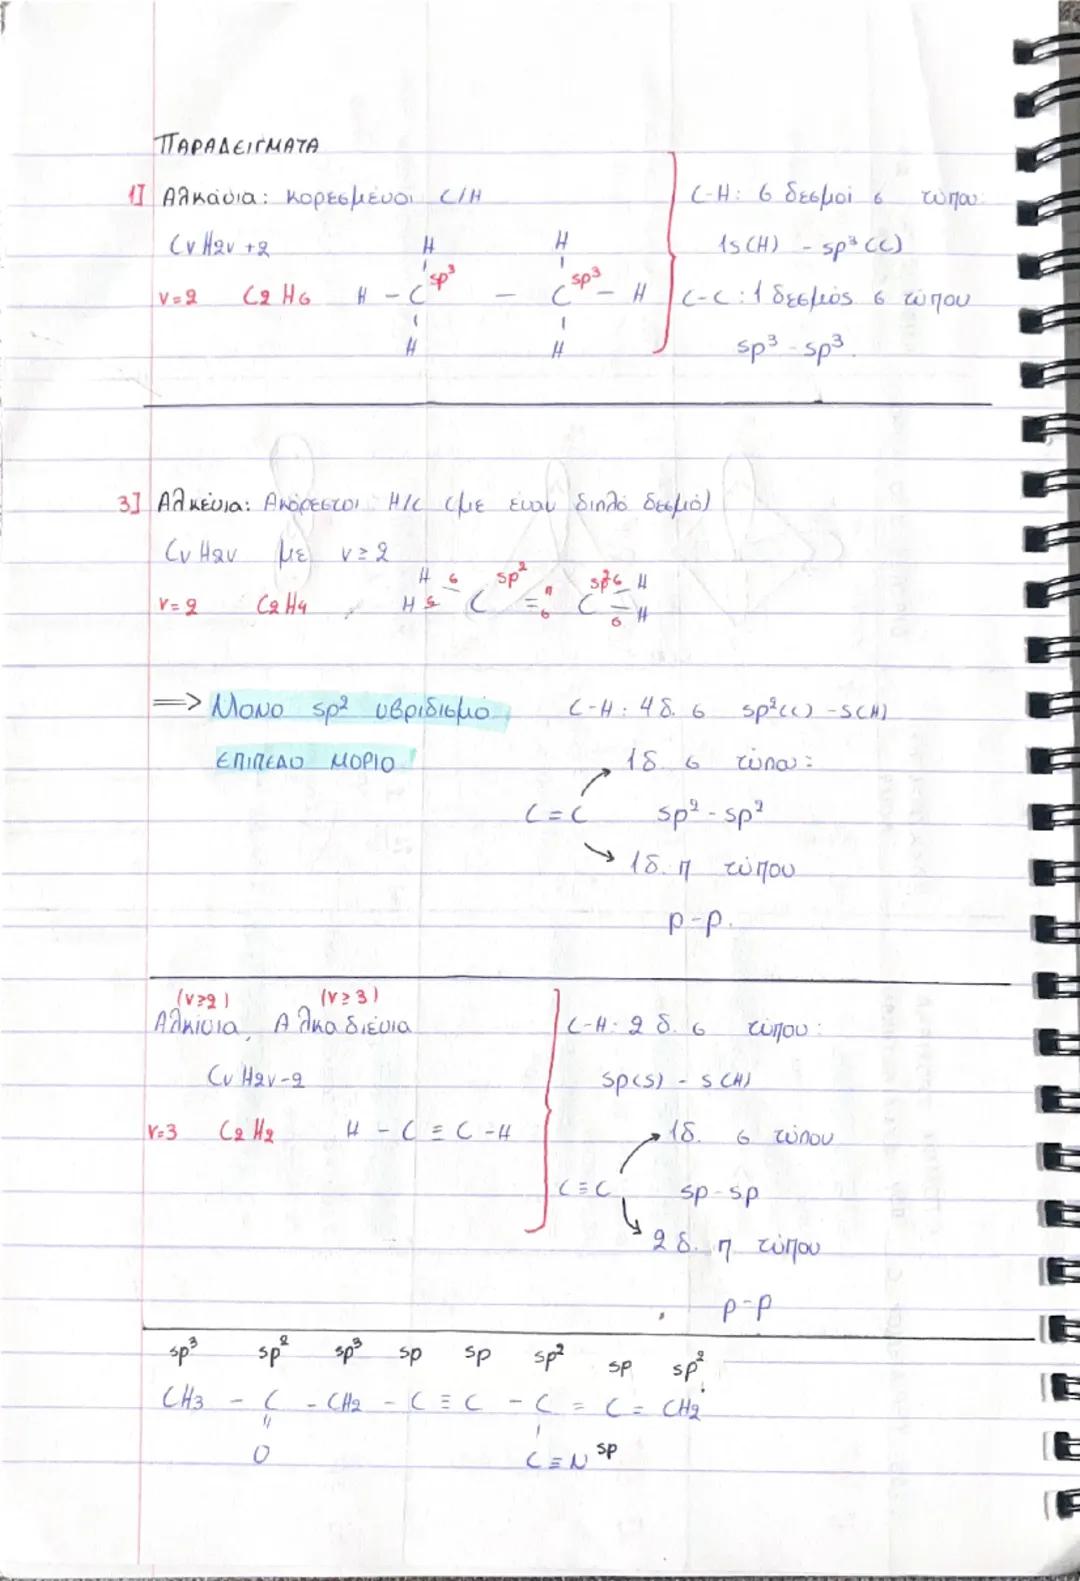 ΠΑΡΑΔΕΙΓΜΑΤΑ
1] Αλκάνια: κορεσμένοι C/H
CνH2ν+2
ν=2 C2H6
H H
H - C sp³ - C sp³ - H
H H
C-H: 6 δεσμοί σ τύπου
1s(H) - sp³(C)
C-C: 1 δεσμός σ τύπου
sp³-sp³.
3] Αλκένια: Ακόρεστοι H/C (με έναν διπλό δεσμό)
CνH2ν με ν≥2
H σ sp² sp² σ H
ν=2 C2H4, H σ C = π σ C = σ H
=> ΜΟΝΟ sp² υβριδισμό
ΕΠΙΠΕΔΟ ΜΟΡΙΟ
C-H: 4δ. σ sp²(C) - S(H)
1δ. σ τύπου:
C=C sp²-sp²
1δ. π τύπου
p-p.
(ν≥2) (ν≥3)
Αλκίνια, Αλκαδιένια
CνH2ν-2
ν=3 C2H2 H - C ≡ C - H
C-H: 2 δ. σ τύπου:
sp(s) - s(H)
1δ. σ τύπου
C≡C sp-sp
2 δ. π τύπου
p-p
sp³ sp² sp³ sp sp sp² sp sp²
CH3 - C - CH2 - C ≡ C - C = C = CH2
O C≡N sp